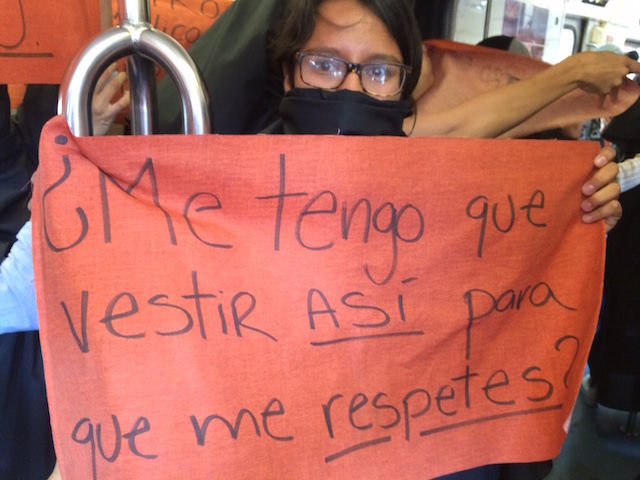 ¿Me tengo que
vestir ASÍ para
que me respetes?